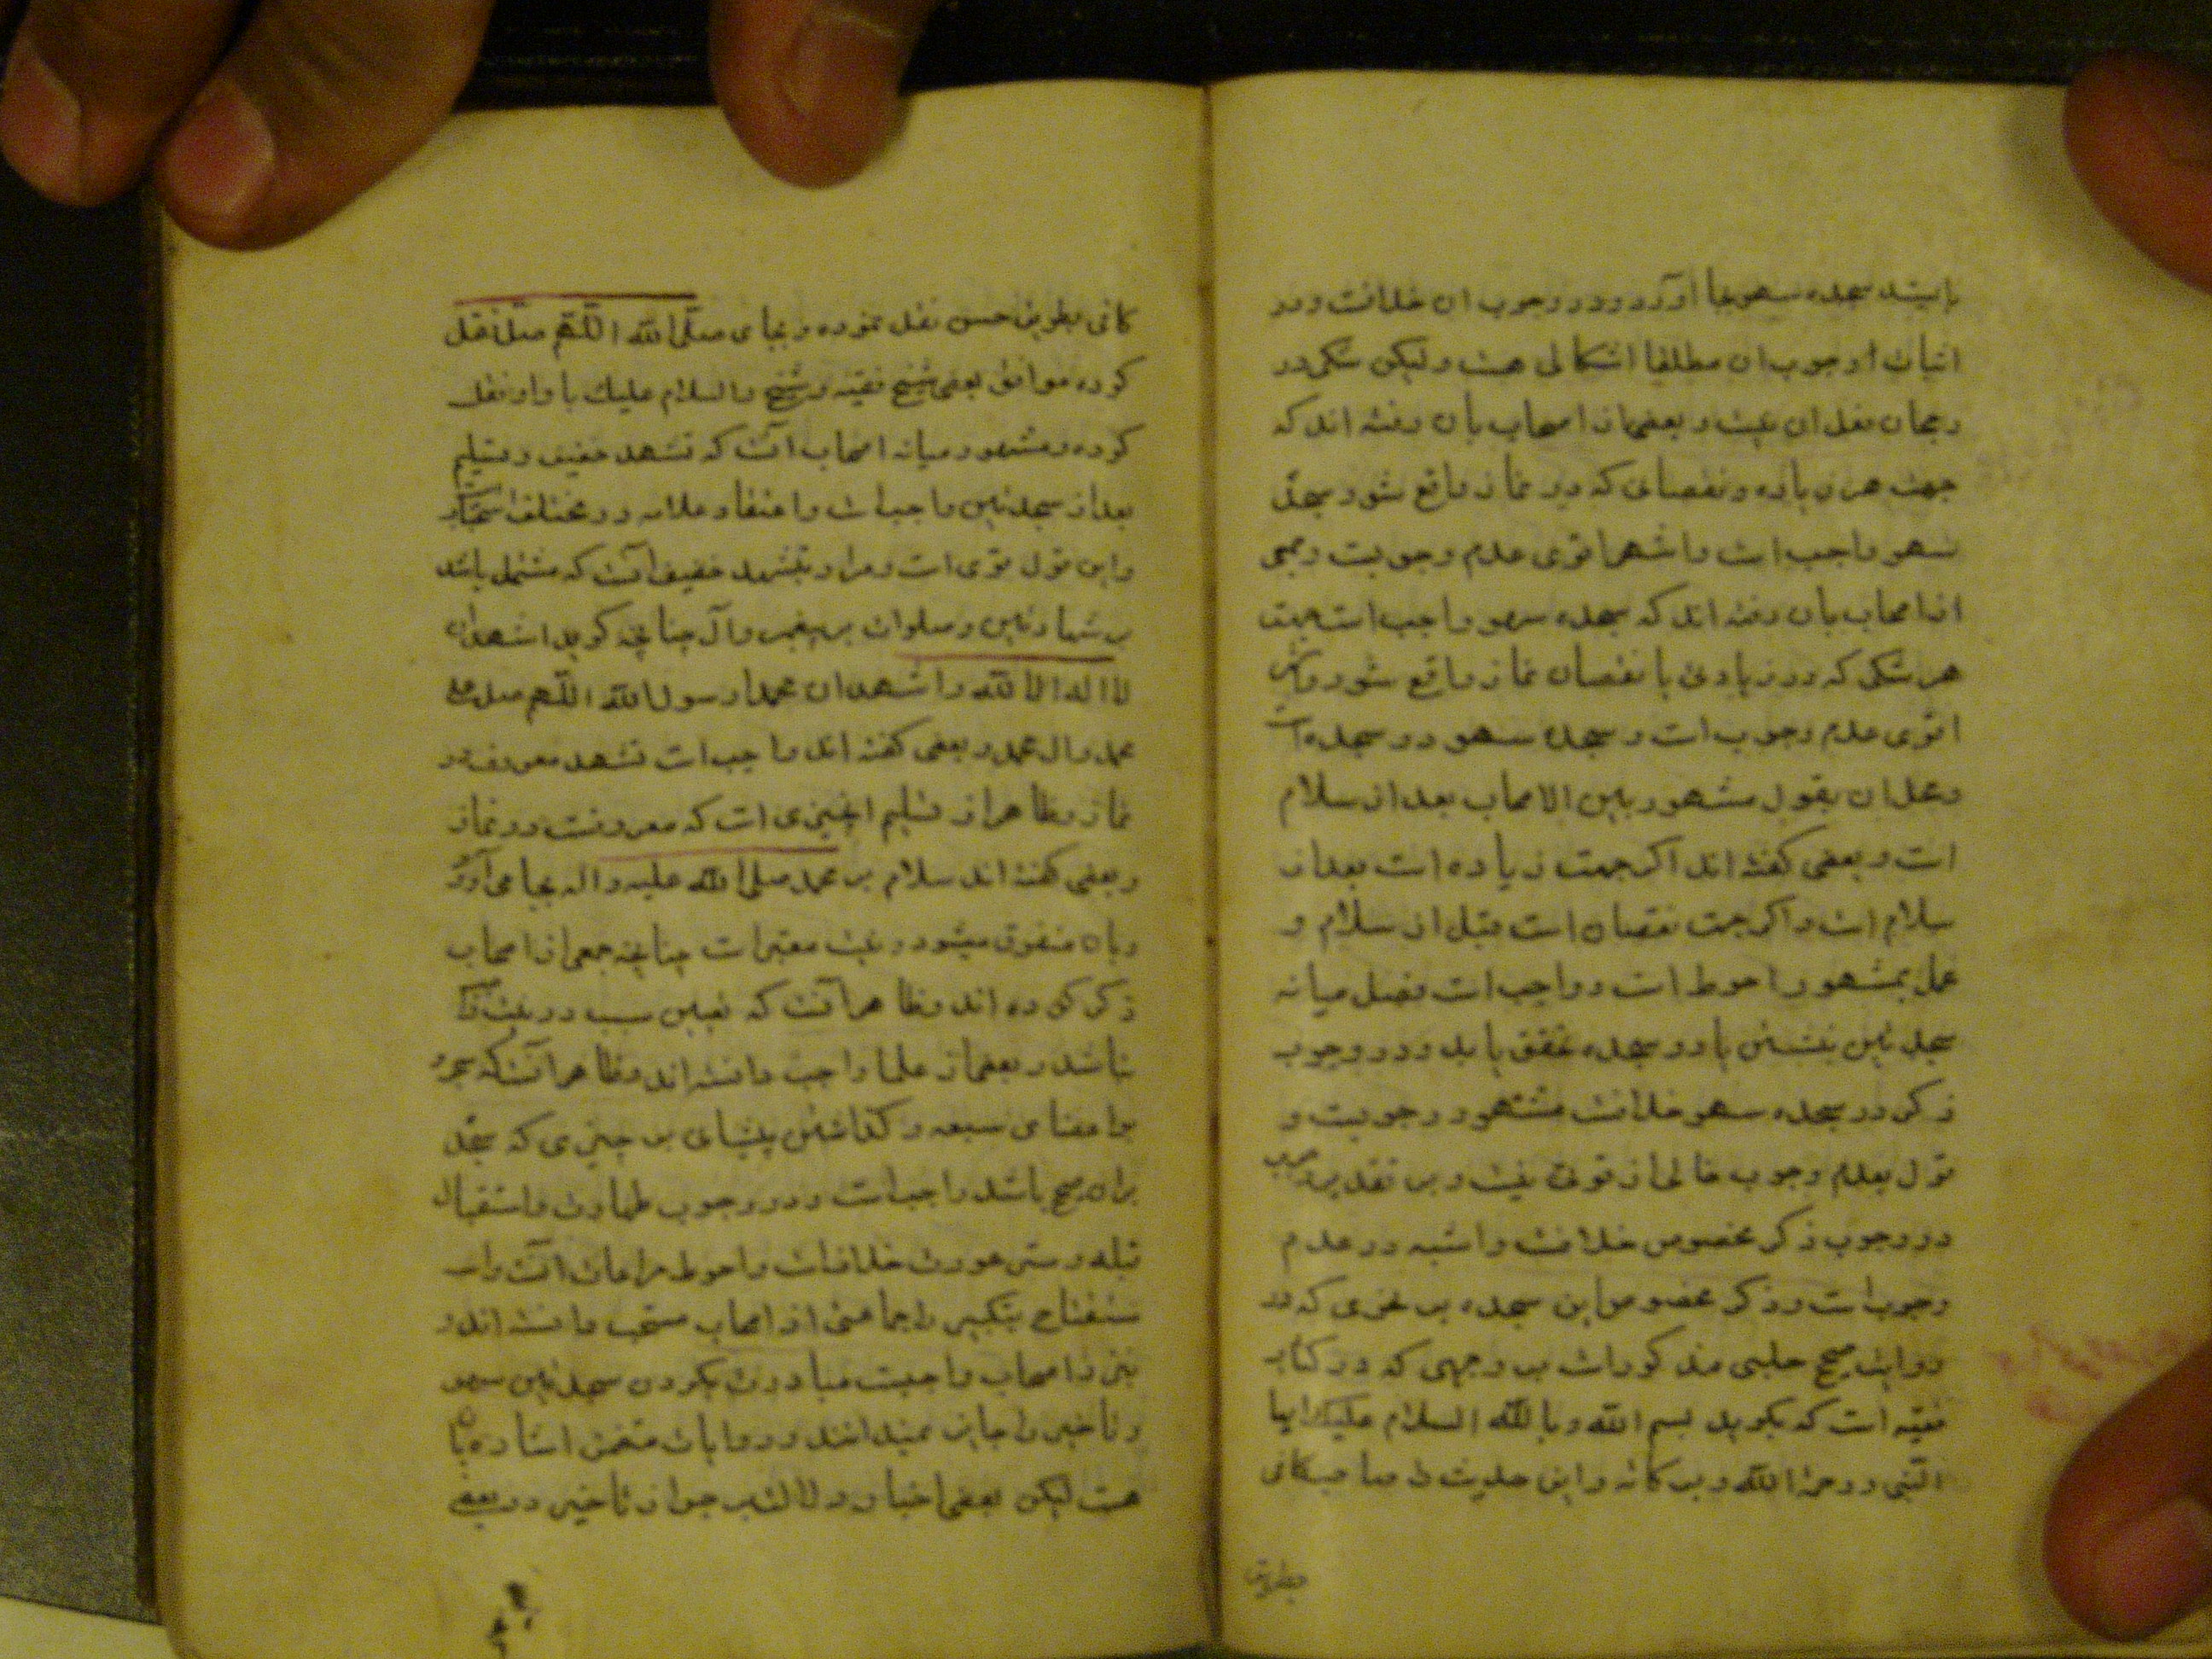 بایستد سجده سهو بجا آورد و در وجوب ان خلافت و در
اثبات وجوب ان مطلقا اشکالی هست و لیکن شکی در
رجحان فعل ان نیست و بعضی از اصحاب بان رفته اند که
جهت هر زیاده و نقصانی که در نماز واقع شود سجدهٔ
سهو واجب است و اشهر اقوی عدم وجوبست و جمعی
از اصحاب بان رفته اند که سجده سهو واجب است جهت
هر شکی که در زیادتی یا نقصان نماز واقع شود و
اقوی عدم وجوب است و سجده سهو دو سجده است
و محل ان بقول مشهور بین الاصحاب بعد از سلام
است و بعضی گفته اند اگر جهت زیاده است بعد از
سلام است و اگر جهت نقصان است قبل از سلام و
عمل بمشهور احوط است و واجب است فصل میانه
سجدتین بنشستن تا دو سجده تحقق یابد و در وجوب
ذکر در سجده سهو خلافست مشهور وجوبست و
قول بعدم وجوب خالی از قوتی نیست و بر تقدیر وجوب
در وجوب ذکر مخصوص خلافست و اشبه در عدم
وجوب است و ذکر مخصوص این سجده بر نحوی که در
روایت صحیح حلبی مذکور است بر وجهی که در کتاب
فقیه است که بگوید بسم الله و بالله السلام علیک ایها
النبی و رحمة الله و برکاته و این حدیث را صاحب کافی
بطریق
کافی بطریق حسن نقل نموده و بجای صلی الله اللهم صل نقل
کرده موافق بعضی نسخ فقیه و شیخ والسلام علیک با واو نقل
کرده و مشهور میانه اصحاب آنست که تشهد خفیف و تسلیم
بعد از سجدتین واجب است و اعتقاد علامه در مختلف استحباب
و این قول قوی است و مراد بتشهد خفیف آنست که مشتمل باشد
بر شهادتین و صلوات بر پیغمبر و آل چنانچه گوید اشهد ان
لا اله الا الله و اشهد ان محمدا رسول الله اللهم صل علی
محمد و ال محمد و بعضی گفته اند واجب است تشهد معروف در
نماز و ظاهر از تسلیم انچیزی است که معروفست در نماز
و بعضی گفته اند سلام بر محمد صلی الله علیه و اله بجا می آورد
و بان منفوق میشود و نیت معتبر است چنانچه جمعی از اصحاب
ذکر کرده اند و ظاهر آنست که تعیین سبب در نیت
نباشد و بعضی از علما واجب دانسته اند و ظاهر آنست که سجود
بر اعضای سبعه و گذاشتن پیشانی بر چیزی که سجده
بران صحیح باشد واجب است و در وجوب طهارت و استقبال
قبله و ستر عورت خلاف است و احوط مراعات آنست و
استفتاح بتکبیر را جماعتی از اصحاب مستحب دانسته اند و
نیز اصحاب واجبست مبادرت بکردن سجدتین سهو
و تاخیر را جایز نمیدانند و روایات متضمن اشاره بان
هست لیکن بعضی اخبار دلالت بر جواز تاخیر در بعضی